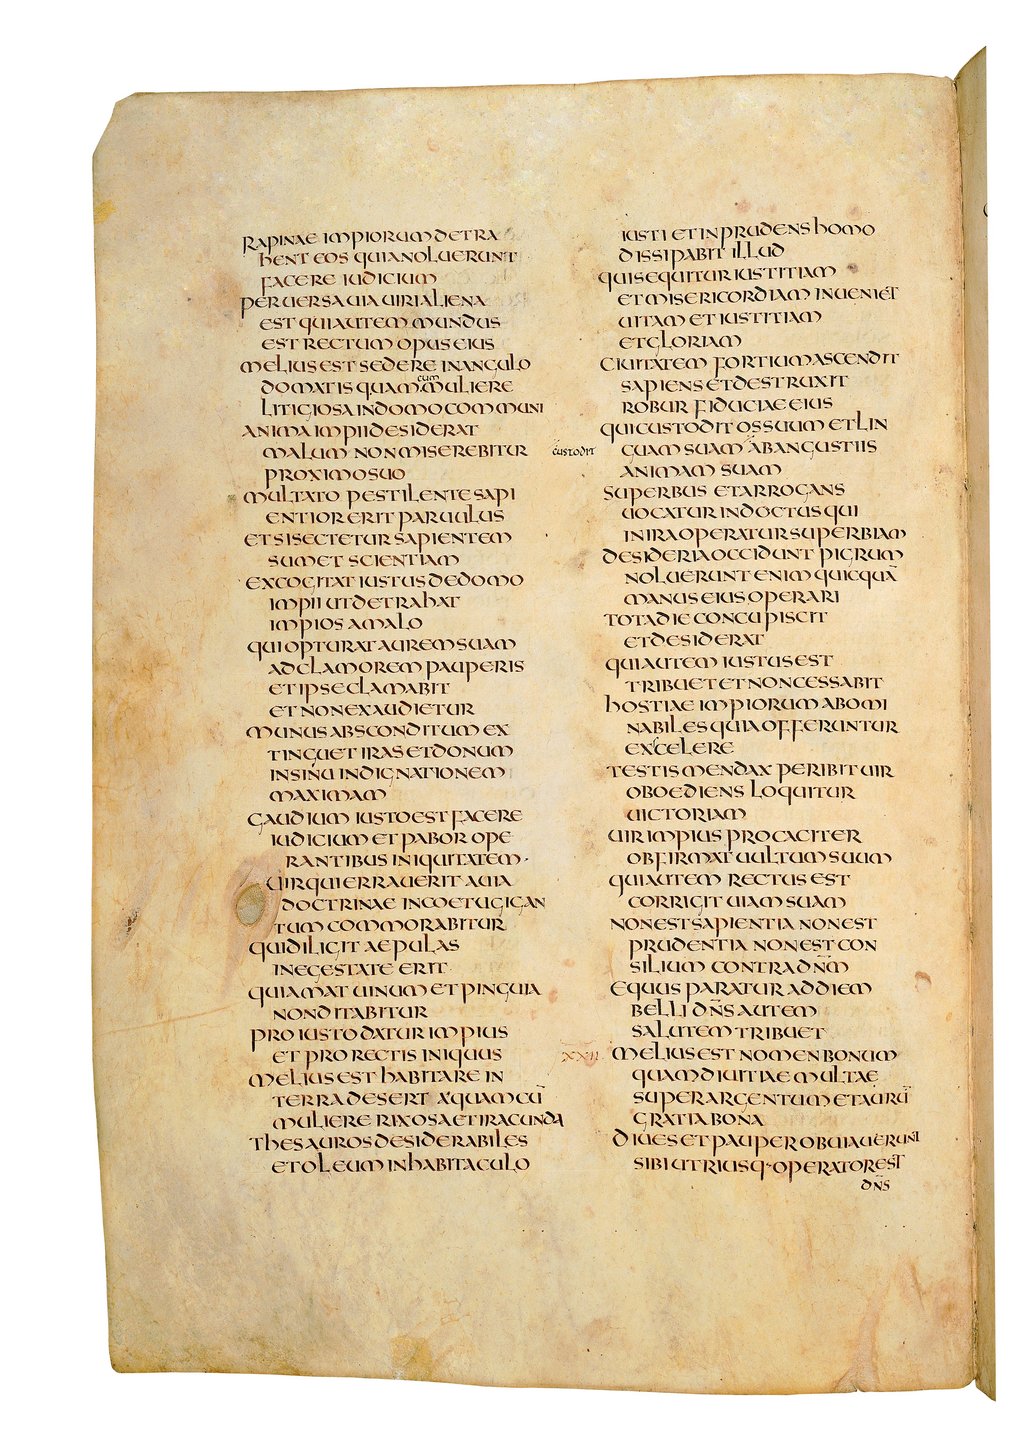 RAPINAE IMPIORUM DETRA
HENT EOS QUIA NOLUERUNT
FACERE IUDICIUM
PERVERSA UIA UIRI ALIENA
EST QUI AUTEM MUNDUS
EST RECTUM OPUS EIUS
MELIUS EST SEDERE IN ANGULO
DOMATIS QUAM cum MULIERE
LITIGIOSA IN DOMO COMMUNI
ANIMA IMPII DESIDERAT
MALUM NON MISEREBITUR
PROXIMO SUO
MULTATO PESTILENTE SAPI
ENTIOR ERIT PARUULUS
ET SI SECTETUR SAPIENTEM
SUMET SCIENTIAM
EXCOGITAT IUSTUS DE DOMO
IMPII UT DETRAHAT
IMPIOS A MALO
QUI OPTURAT AUREM SUAM
AD CLAMOREM PAUPERIS
ET IPSE CLAMABIT
ET NON EXAUDIETUR
MUNUS ABSCONDITUM EX
TINGUET IRAS ET DONUM
IN SINU INDIGNATIONEM
MAXIMAM
GAUDIUM IUSTO EST FACERE
IUDICIUM ET PABOR OPE
RANTIBUS INIQUITATEM·
UIR QUI ERRAUERIT A UIA
DOCTRINAE IN COETU GIGAN
TUM COMMORABITUR
QUI DILIGIT AEPULAS
IN EGESTATE ERIT
QUI AMAT UINUM ET PINGUIA
NON DITABITUR
PRO IUSTO DATUR IMPIUS
ET PRO RECTIS INIQUUS
MELIUS EST HABITARE IN
TERRA DESERTA QUAM CŪ
MULIERE RIXOSA ET IRACUNDA
THESAUROS DESIDERABILES
ET OLEUM IN HABITACULO
IUSTI ET INPRUDENS HOMO
DISSIPABIT ILLUD
QUI SEQUITUR IUSTITIAM
ET MISERICORDIAM INUENIET
UITAM ET IUSTITIAM
ET GLORIAM
CIUITATEM FORTIUM ASCENDIT
SAPIENS ET DESTRUXIT
ROBUR FIDUCIAE EIUS
QUI CUSTODIT OS SUUM ET LIN
custodit GUAM SUAM AB ANGUSTIIS
ANIMAM SUAM
SUPERBUS ET ARROGANS
UOCATUR INDOCTUS QUI
IN IRA OPERATUR SUPERBIAM
DESIDERIA OCCIDUNT PIGRUM
NOLUERUNT ENIM QUICQUĀ
MANUS EIUS OPERARI
TOTA DIE CONCUPISCIT
ET DESIDERAT
QUI AUTEM IUSTUS EST
TRIBUET ET NON CESSABIT
HOSTIAE IMPIORUM ABOMI
NABILES QUIA OFFERUNTUR
EX SCELERE
TESTIS MENDAX PERIBIT UIR
OBOEDIENS LOQUITUR
UICTORIAM
UIR IMPIUS PROCACITER
OBFIRMAT UULTUM SUUM
QUI AUTEM RECTUS EST
CORRIGIT UIAM SUAM
NON EST SAPIENTIA NON EST
PRUDENTIA NON EST CON
SILIUM CONTRA DÑM
EQUUS PARATUR AD DIEM
BELLI DÑS AUTEM
SALUTEM TRIBUET
XXII MELIUS EST NOMEN BONUM
QUAM DIUITIAE MULTAE
SUPER ARGENTUM ET AURŪ
GRATIA BONA
DIUES ET PAUPER OBUIAUERUNT
SIBI UTRIUSQ· OPERATOR EST
DÑS